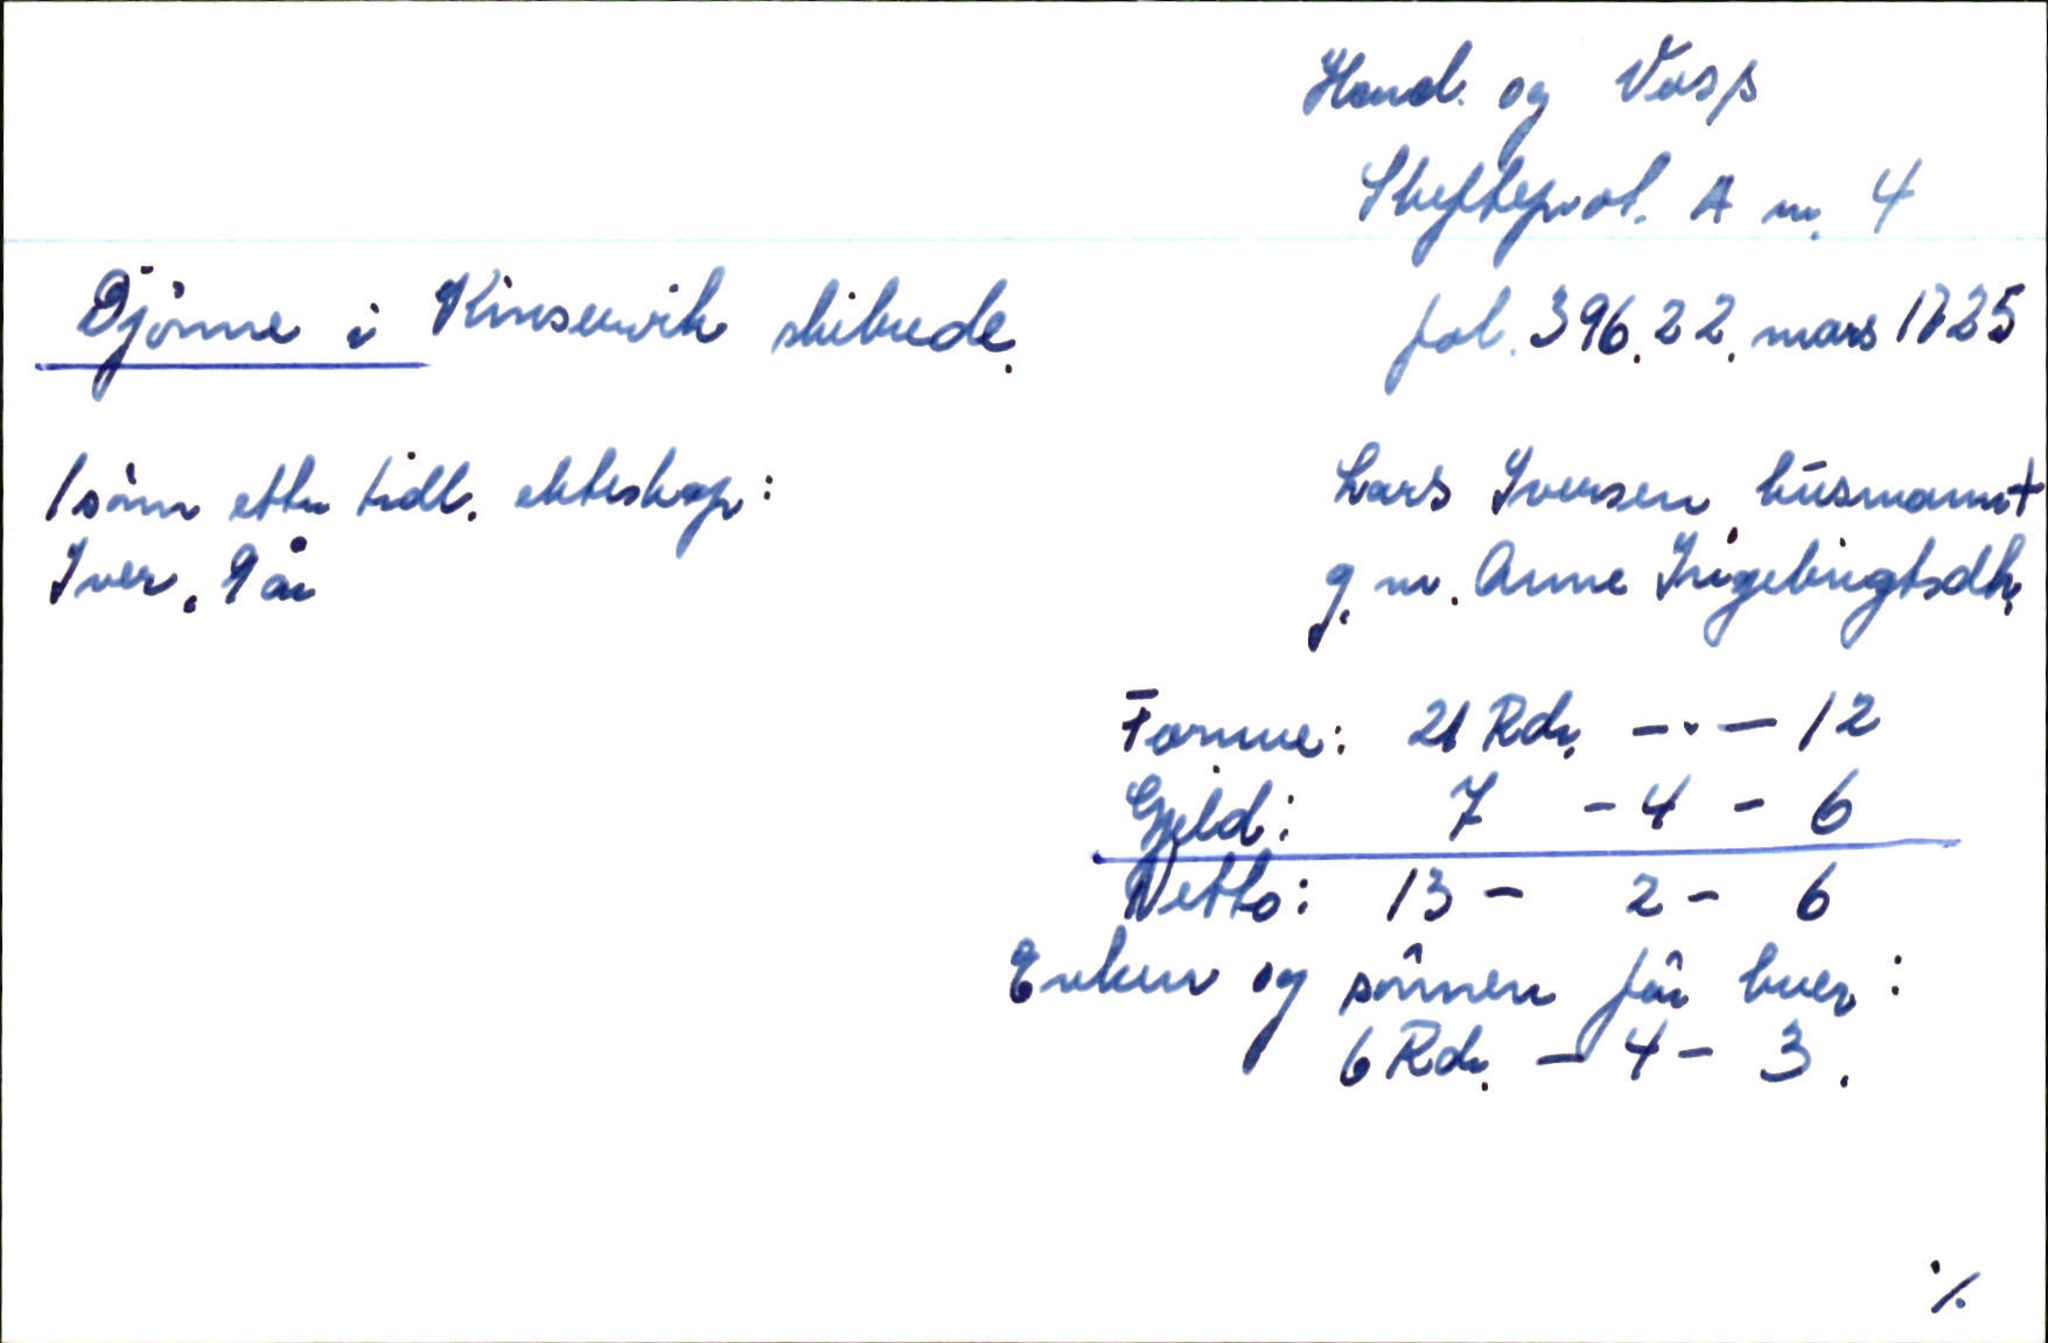 Hard. og Voss
Skifteprot. A nr. 4
Djönne i Kinservik skibrede.
fol. 396. 22. mars 1725
1 sönn etter tidl. ekteskap:
Iver, 9 år
Lars Iversen, husmann +
g. m. Anne Ingebrigtsdtr.
Formue: 21 Rdr. - . - 12
Gjeld: 7 - 4 - 6
Netto: 13 - 2 - 6
Enken og sönnen får hver:
6 Rdr. - 4 - 3.
./.